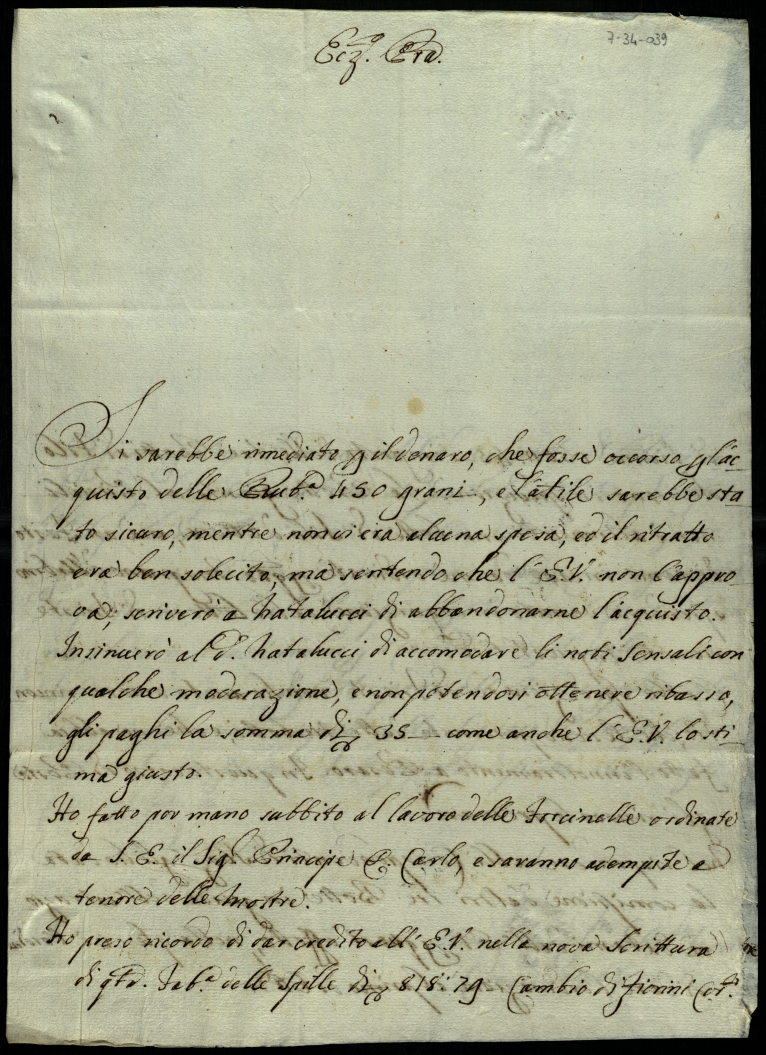 7-34-039
Ecc.mo Prd.
Si sarebbe rimediato p il denaro, che fosse occorso p l'ac-
quisto delle Rub.a 450 grani, e l'afile sarebbe sta-
to sicuro, mentre non vi era alcuna spesa, ed il ritratto
era ben solecito, ma sentendo che l'E.V. non l'appro
va, scriverò a Natalucci di abbandonarne l'acquisto.
Insinuerò al d.o Natalucci di accomodare li noti Sensali con
qualche moderazione, e non potendosi ottenere ribasso,
gli paghi la somma di 35 come anche l'E.V. lo sti-
ma giusto.
Ho fatto por mano subbito al lavoro delle Forcinelle ordinate
da S. E. il Sig.r Principe D. Carlo, e saranno adempite a
tenore delle mostre.
Ho preso ricordo di dar credito all'E.V. nella nova Scrittura
di q.ta Fab.a delle Spille di 818:79 Cambio di fiorini